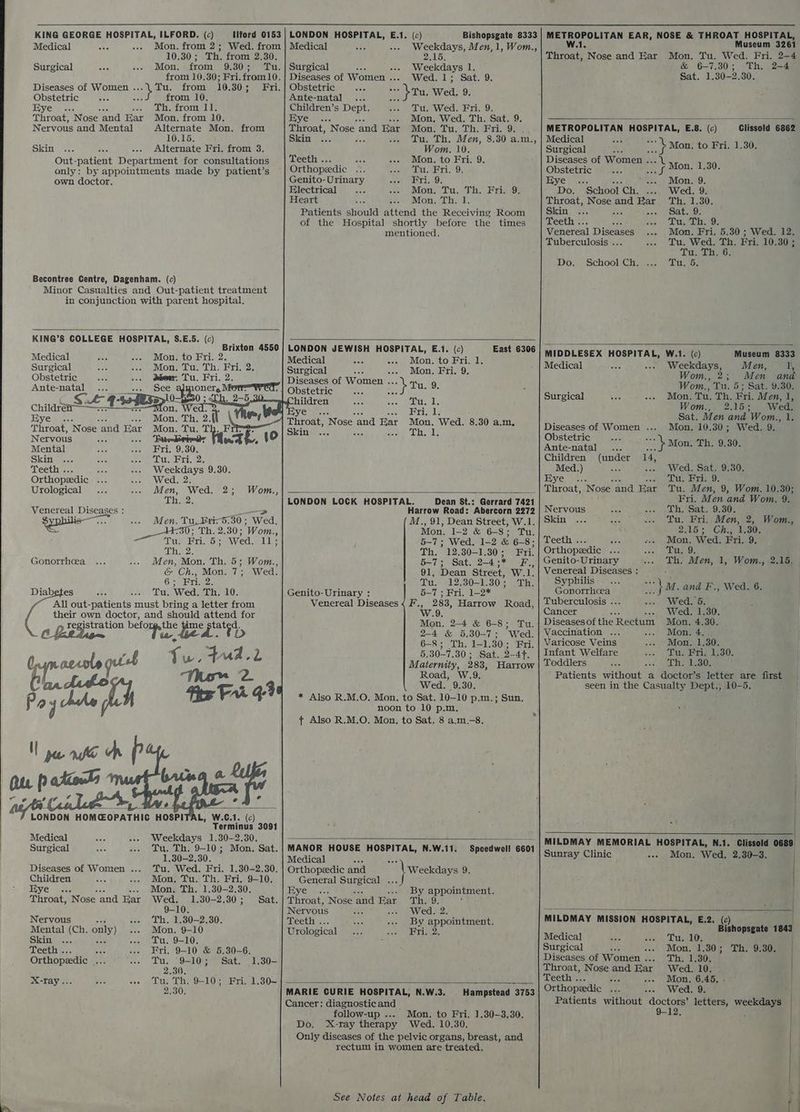 KING GEORGE HOSPITAL, ILFORD. (c) Ilford 0153
Medical ... ... Mon. from 2; Wed. from
10.30; Th. from 2.30.
Surgical ... ... Mon. from 9.30; Tu.
from 10.30; Fri. from 10.
Diseases of Women ... } Tu. from 10.30; Fri.
Obstetric ... ... } from 10.
Eye ... ... ... Th. from 11.
Throat, Nose and Ear Mon. from 10.
Nervous and Mental Alternate Mon. from
10.15.
Skin ... ... ... Alternate Fri. from 3.
Out-patient Department for consultations
only: by appointments made by patient's
own doctor.
Becontree Centre, Dagenham. (c)
Minor Casualties and Out-patient treatment
in conjunction with parent hospital.
KING'S COLLEGE HOSPITAL, S.E.5. (c)
Brixton 4550
Medical ... ... Mon. to Fri. 2.
Surgical ... ... Mon. Tu. Th. Fri. 2.
Obstetric ... ... Mon. Tu. Fri. 2.
Ante-natal ... ... See almoner,
Children
Mon. Wed. 2
Eye ... ... ... Mon. Th. 2.
Throat, Nose and Ear Mon. Tu. Th.
Nervous ... ...
Mental ... ... Fri. 9.30.
Skin ... ... ... Tu. Fri. 2.
Teeth ... ... ... Weekdays 9.30.
Orthopædic ... ... Wed. 2.
Urological ... ... Men, Wed. 2; Wom.,
Th. 2.
Venereal Diseases:
Syphilis ... ... Men, Tu. Fri. 5.30; Wed.
11.30; Th. 2.30; Wom.,
Tu. Fri. 5; Wed. 11;
Th. 2.
Gonorrhœa ... ... Men, Mon. Th. 5; Wom.,
& Ch., Mon. 7; Wed.
6; Fri. 2.
Diabetes ... ... Tu. Wed. Th. 10.
All out-patients must bring a letter from
their own doctor, and should attend for
registration before the time stated.
Thurs 2
LONDON HOMŒOPATHIC HOSPITAL, W.C.1. (c)
Terminus 3091
Medical ... ... Weekdays 1.30–2.30.
Surgical ... ... Tu. Th. 9–10; Mon. Sat.
1.30–2.30.
Diseases of Women ... Tu. Wed. Fri. 1.30–2.30.
Children ... ... Mon. Tu. Th. Fri. 9–10.
Eye ... ... ... Mon. Th. 1.30–2.30.
Throat, Nose and Ear Wed. 1.30–2.30; Sat.
9–10.
Nervous ... ... Th. 1.30–2.30.
Mental (Ch. only) ... Mon. 9–10
Skin ... ... ... Tu. 9–10.
Teeth ... ... ... Fri. 9–10 & 5.30–6.
Orthopædic ... ... Tu. 9–10; Sat. 1.30–
2.30.
X-ray ... ... ... Tu. Th. 9–10; Fri. 1.30–
2.30.
LONDON HOSPITAL, E.1. (c) Bishopsgate 8333
Medical ... ... Weekdays, Men, 1, Wom.,
2.15.
Surgical ... ... Weekdays 1.
Diseases of Women ... Wed. 1; Sat. 9.
Obstetric ... ... } Tu. Wed. 9.
Ante-natal ... ... }
Children's Dept. ... Tu. Wed. Fri. 9.
Eye ... ... ... Mon. Wed. Th. Sat. 9.
Throat, Nose and Ear Mon. Tu. Th. Fri. 9.
Skin ... ... ... Tu. Th. Men, 8.30 a.m.,
Wom. 10.
Teeth ... ... ... Mon. to Fri. 9.
Orthopædic ... ... Tu. Fri. 9.
Genito-Urinary ... Fri. 9.
Electrical ... ... Mon. Tu. Th. Fri. 9.
Heart ... ... Mon. Th. 1.
Patients should attend the Receiving Room
of the Hospital shortly before the times
mentioned.
LONDON JEWISH HOSPITAL, E.1. (c) East 6306
Medical ... ... Mon. to Fri. 1.
Surgical ... ... Mon. Fri. 9.
Diseases of Women ... } Tu. 9.
Obstetric ... ... }
Children ... ... Tu. 1.
Eye ... ... ... Fri. 1.
Throat, Nose and Ear Mon. Wed. 8.30 a.m.
Skin ... ... ... Th. 1.
LONDON LOCK HOSPITAL. Dean St.: Gerrard 7421
Harrow Road: Abercorn 2272
M., 91, Dean Street, W.1.
Mon. 1–2 & 6–8; Tu.
5–7; Wed. 1–2 & 6–8;
Th. 12.30–1.30; Fri.
5–7; Sat. 2–4;* F.,
91, Dean Street, W.1.
Tu. 12.30–1.30; Th.
Genito-Urinary: 5–7; Fri. 1–2*
Venereal Diseases { F., 283, Harrow Road,
W.9.
Mon. 2–4 & 6–8; Tu.
2–4 & 5.30–7; Wed.
6–8; Th. 1–1.30; Fri.
5.30–7.30; Sat. 2–4†.
Maternity, 283, Harrow
Road, W.9.
Wed. 9.30.
* Also R.M.O. Mon. to Sat. 10–10 p.m.; Sun.
noon to 10 p.m.
† Also R.M.O. Mon. to Sat. 8 a.m.–8.
MANOR HOUSE HOSPITAL, N.W.11. Speedwell 6601
Medical ... ... }
Orthopædic and } Weekdays 9.
General Surgical ... }
Eye ... ... ... By appointment.
Throat, Nose and Ear Th. 9.
Nervous ... ... Wed. 2.
Teeth ... ... ... By appointment.
Urological ... ... Fri. 2.
MARIE CURIE HOSPITAL, N.W.3. Hampstead 3753
Cancer: diagnostic and
follow-up ... Mon. to Fri. 1.30–3.30.
Do. X-ray therapy Wed. 10.30.
Only diseases of the pelvic organs, breast, and
rectum in women are treated.
METROPOLITAN EAR, NOSE & THROAT HOSPITAL,
W.1. Museum 3261
Throat, Nose and Ear Mon. Tu. Wed. Fri. 2–4
& 6–7.30; Th. 2–4
Sat. 1.30–2.30.
METROPOLITAN HOSPITAL, E.8. (c) Clissold 6862
Medical ... ... } Mon. to Fri. 1.30.
Surgical ... ... }
Diseases of Women ... } Mon. 1.30.
Obstetric ... ... }
Eye ... ... ... Mon. 9.
Do. School Ch. ... Wed. 9.
Throat, Nose and Ear Th. 1.30.
Skin ... ... ... Sat. 9.
Teeth ... ... ... Tu. Th. 9.
Venereal Diseases ... Mon. Fri. 5.30; Wed. 12.
Tuberculosis ... ... Tu. Wed. Th. Fri. 10.30;
Tu. Th. 6.
Do. School Ch. ... Tu. 5.
MIDDLESEX HOSPITAL, W.1. (c) Museum 8333
Medical ... ... Weekdays, Men, 1,
Wom., 2; Men and
Wom., Tu. 5; Sat. 9.30.
Surgical ... ... Mon. Tu. Th. Fri. Men, 1,
Wom., 2.15; Wed.
Sat. Men and Wom., 1.
Diseases of Women ... Mon. 10.30; Wed. 9.
Obstetric ... ... } Mon. Th. 9.30.
Ante-natal ... ... }
Children (under 14,
Med.) ... ... Wed. Sat. 9.30.
Eye ... ... ... Tu. Fri. 9.
Throat, Nose and Ear Tu. Men, 9, Wom. 10.30;
Fri. Men and Wom. 9.
Nervous ... ... Th. Sat. 9.30.
Skin ... ... ... Tu. Fri. Men, 2, Wom.,
2.15; Ch., 1.30.
Teeth ... ... ... Mon. Wed. Fri. 9.
Orthopædic ... ... Tu. 9.
Genito-Urinary ... Th. Men, 1, Wom., 2.15.
Venereal Diseases:
Syphilis ... ... } M. and F., Wed. 6.
Gonorrhœa ... }
Tuberculosis ... ... Wed. 5.
Cancer ... ... Wed. 1.30.
Diseases of the Rectum Mon. 4.30.
Vaccination ... ... Mon. 4.
Varicose Veins ... Mon. 1.30.
Infant Welfare ... Tu. Fri. 1.30.
Toddlers ... ... Th. 1.30.
Patients without a doctor's letter are first
seen in the Casualty Dept., 10–5.
MILDMAY MEMORIAL HOSPITAL, N.1. Clissold 0689
Sunray Clinic ... Mon. Wed. 2.30–3.
MILDMAY MISSION HOSPITAL, E.2. (c)
Bishopsgate 1843
Medical ... ... Tu. 10.
Surgical ... ... Mon. 1.30; Th. 9.30.
Diseases of Women ... Th. 1.30.
Throat, Nose and Ear Wed. 10.
Teeth ... ... ... Mon. 6.45.
Orthopædic ... ... Wed. 9.
Patients without doctors' letters, weekdays
9–12.
See Notes at head of Table.